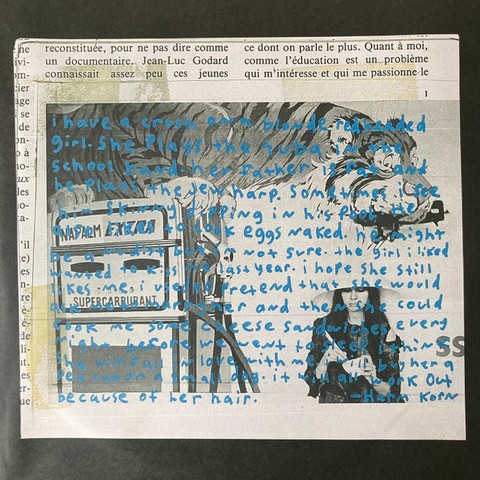 ne reconstituée, pour ne pas dire comme
ivi- un documentaire. Jean-Luc Godard
om- connaissait assez peu ces jeunes
ce dont on parle le plus. Quant à moi,
comme l'éducation est un problème
qui m'intéresse et qui me passionne le
cier
age
se
de
on-
à
no-
aux
les
'il
te)
en
ré-
di-
que
i have a crush on a blonde redheaded
girl. She Plays the tuba in the
School band. her father is fat and
he Plays the Jew harp. Sometimes i see
him skinny dipping in his Pool. He
looks eggs naked. he might
be not sure. the girl i liked
wanted to kiss me last year. i hope she still
likes me. i used to pretend that she would
and then she could
cook me some cheese sandwiches every
night before we went to sleep. i think
in love with me. i will buy her a
on a small dog. it will all work out
because of her hair. -Harm Korn
NAPALM EXTRA
SUPERCARBURANT
SS